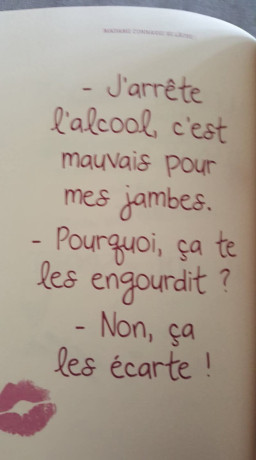 - J'arrête
l'alcool, c'est
mauvais pour
mes jambes.
- Pourquoi, ça te
les engourdit ?
- Non, ça
les écarte !